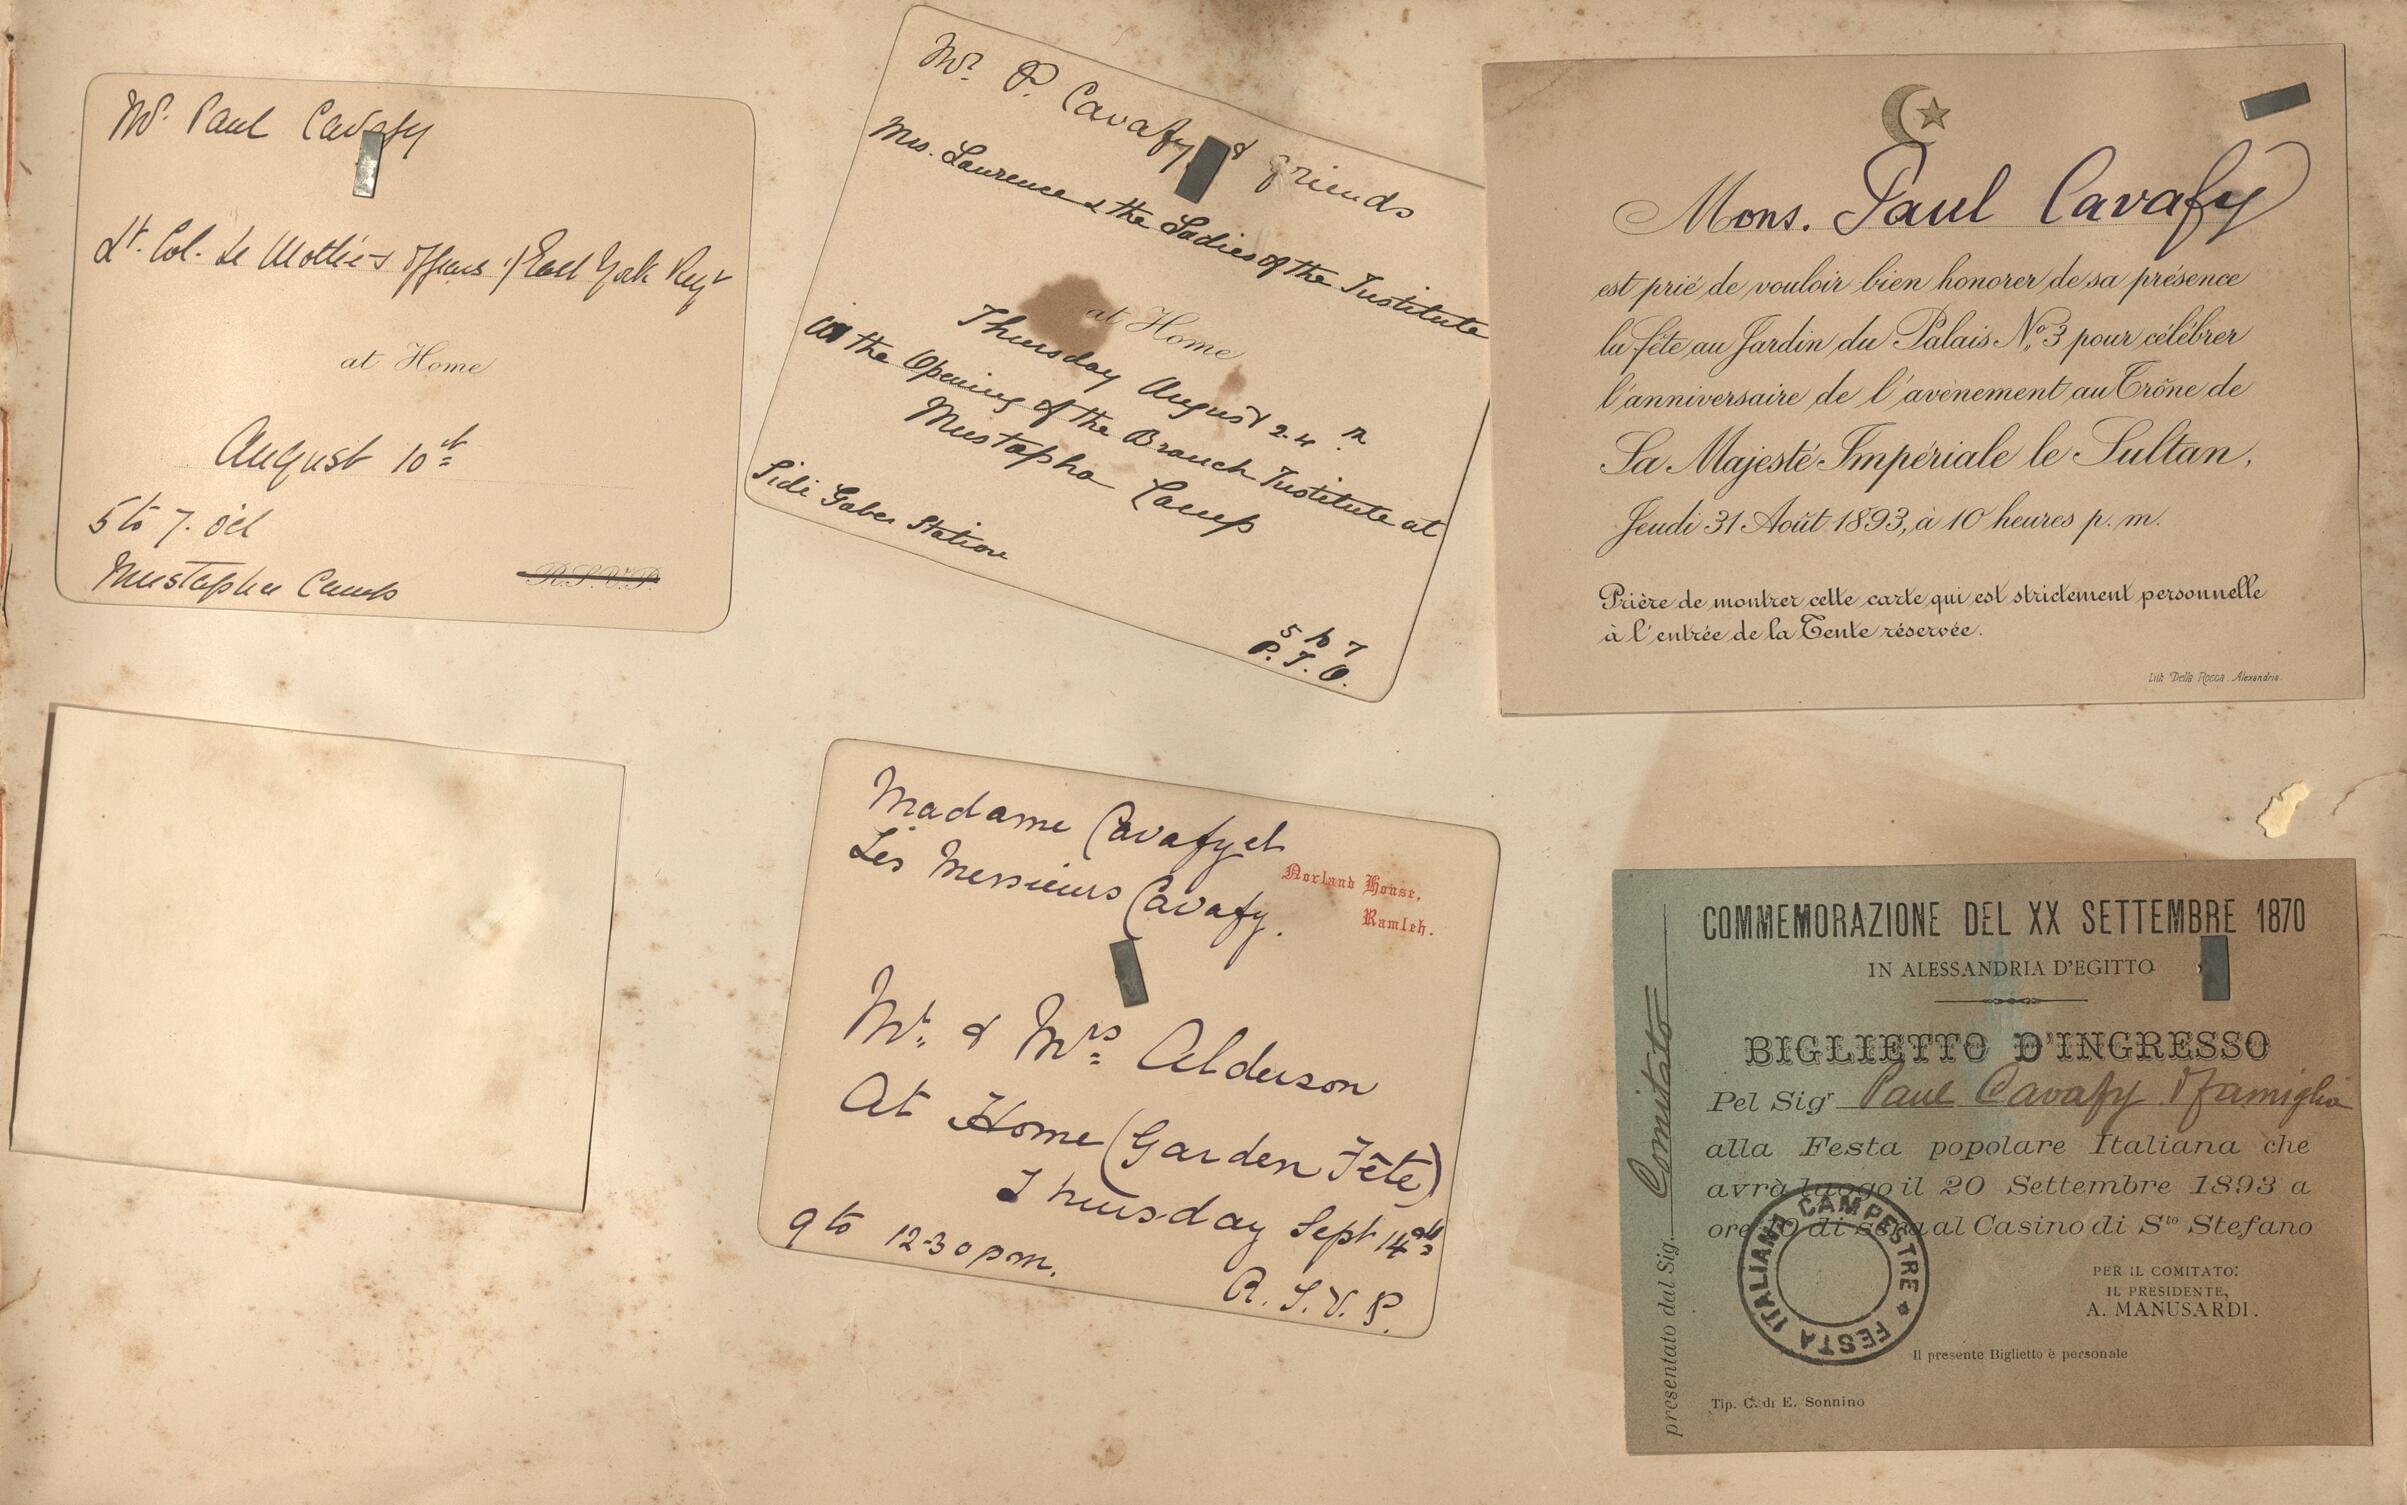 Mr. Paul Cavafy
Lt. Col. Le Mottée & Officers East York Regt
at Home
August 10th
5 to 7. o'cl
Mustapha Camp
R.S.V.P.
Mr. P. Cavafy & friends
Mrs. Laurence & the Ladies of the Institute
at Home
Thursday August 24th
At the Opening of the Branch Institute at
Mustapha Camp
Sidi Gaber Station
5 to 7
P.T.O.
Mons. Paul Cavafy
est prié de vouloir bien honorer de sa présence
la fête au Jardin du Palais No. 3 pour célébrer
l'anniversaire de l'avènement au Trône de
Sa Majesté Impériale le Sultan,
Jeudi 31 Août 1893, à 10 heures p. m.
Prière de montrer cette carte qui est strictement personnelle
à l'entrée de la Tente réservée.
Lith Della Rocca. Alexandria.
Madame Cavafy et
Les Messieurs Cavafy.
Norland House,
Ramleh.
Mr. & Mrs Alderson
At Home (Garden Fête)
Thursday Sept 14th
9 to 12-30 pm.
R.S.V.P.
COMMEMORAZIONE DEL XX SETTEMBRE 1870
IN ALESSANDRIA D'EGITTO
BIGLIETTO D'INGRESSO
Pel Sigr Paul Cavafy & famiglia
alla Festa popolare Italiana che
avrà luogo il 20 Settembre 1893 a
ore 10 di sera al Casino di Sto Stefano
PER IL COMITATO:
IL PRESIDENTE,
A. MANUSARDI.
Il presente Biglietto è personale
Tip. C. di E. Sonnino
presentato dal Sig. Comitato
FESTA ITALIANA CAMPESTRE